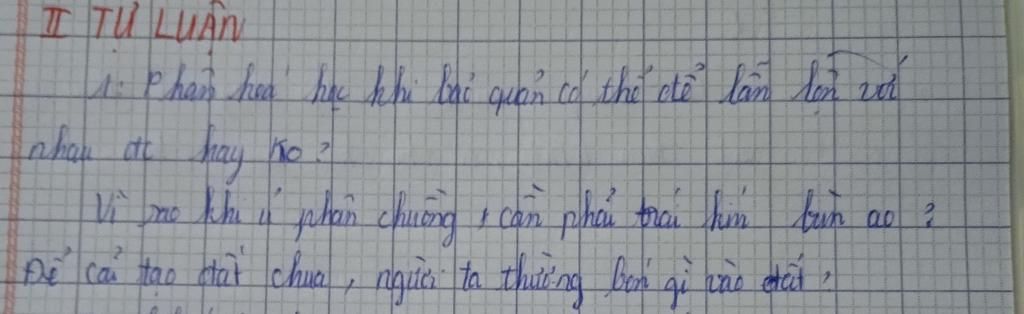 II TỰ LUẬN
1: Phân hoá học khi bảo quản có thể để lẫn lộn với
nhau đc hay ko?
Vì sao khi ủ phân chuồng, cần phải trái kín bùn ao?
Để cải tạo đất chua, người ta thường bón gì vào đất?